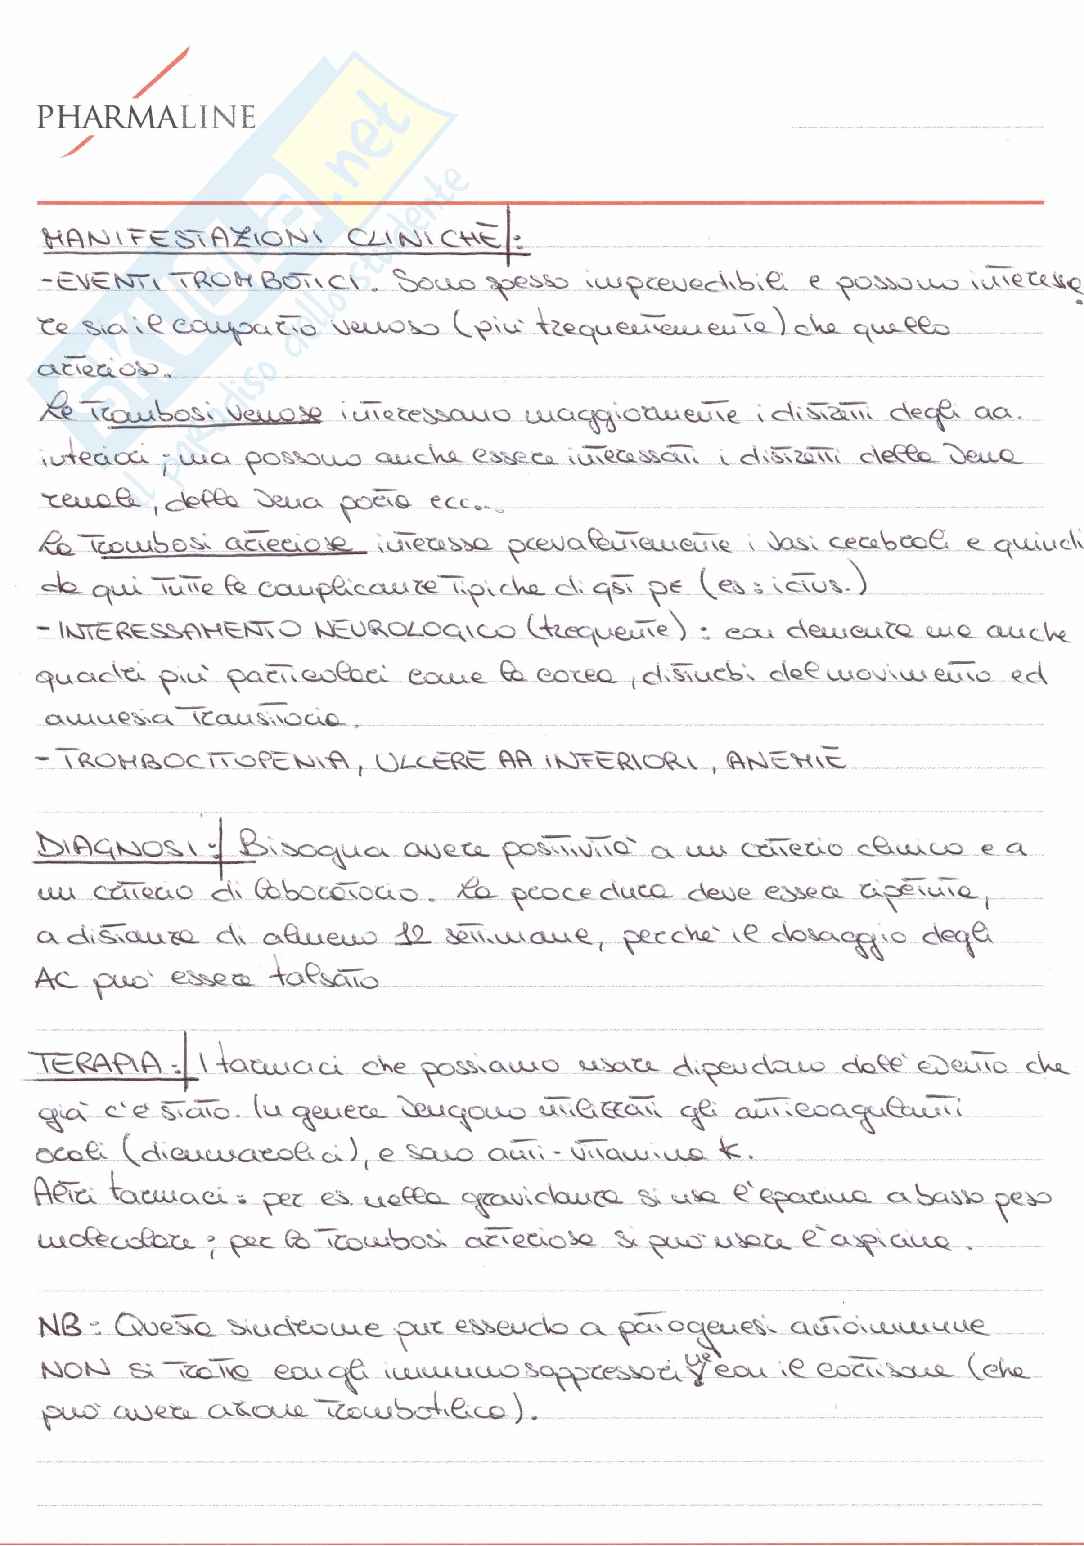 PHARMALINE
SKUOLA.net
il paradiso dello studente
MANIFESTAZIONI CLINICHE:
- EVENTI TROMBOTICI. Sono spesso imprevedibili e possono interessa
re sia il comparto venoso (più frequentemente) che quello
arterioso.
Le trombosi venose interessano maggiormente i distretti degli aa.
inferiori; ma possono anche essere interessati i distretti della vena
renale, della vena porta ecc...
La trombosi arteriose interessa prevalentemente i vasi cerebrali e quindi
da qui tutte le complicanze tipiche di qsti pz (es: ictus.)
- INTERESSAMENTO NEUROLOGICO (frequente): con demenza ma anche
quadri più particolari come la corea, disturbi del movimento ed
amnesia transitoria.
- TROMBOCITOPENIA, ULCERE AA INFERIORI, ANEMIE
DIAGNOSI: Bisogna avere positività a un criterio clinico e a
un criterio di laboratorio. La procedura deve essere ripetuta,
a distanza di almeno 12 settimane, perchè il dosaggio degli
AC può essere falsato
TERAPIA: I farmaci che possiamo usare dipendano dall'evento che
già c'è stato. In genere vengono utilizzati gli anticoagulanti
orali (dicumarolici), e sono anti-vitamina K.
Altri farmaci: per es nella gravidanza si usa l'eparina a basso peso
molecolare; per la trombosi arteriosa si può usare l'aspirina.
NB: Questa sindrome pur essendo a patogenesi autoimmune
NON si tratta con gli immunosoppressori nè con il cortisone (che
può avere azione trombofilica).